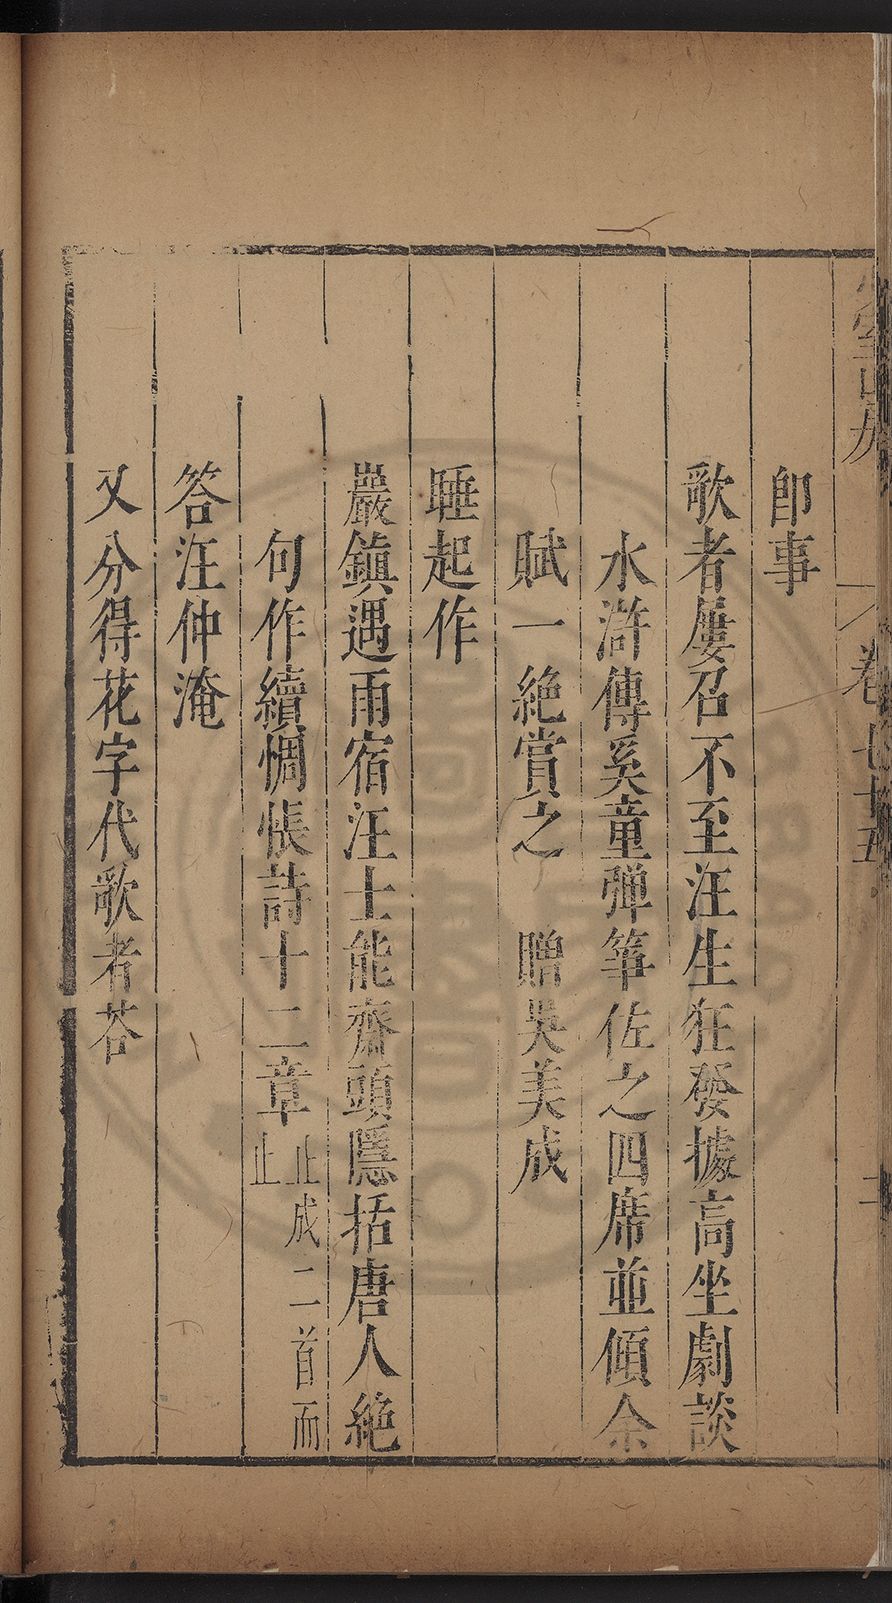 卷七十五
即事
歌者屢召不至汪生狂發據高坐劇談
水滸傳奚童弹箏佐之四席並傾余
賦一絶賞之 贈吳美成
睡起作
巖鎮遇雨宿汪士能齋頭隱括唐人絶
句作續惆悵詩十二章止成二首而
止
答汪仲淹
又分得花字代歌者荅